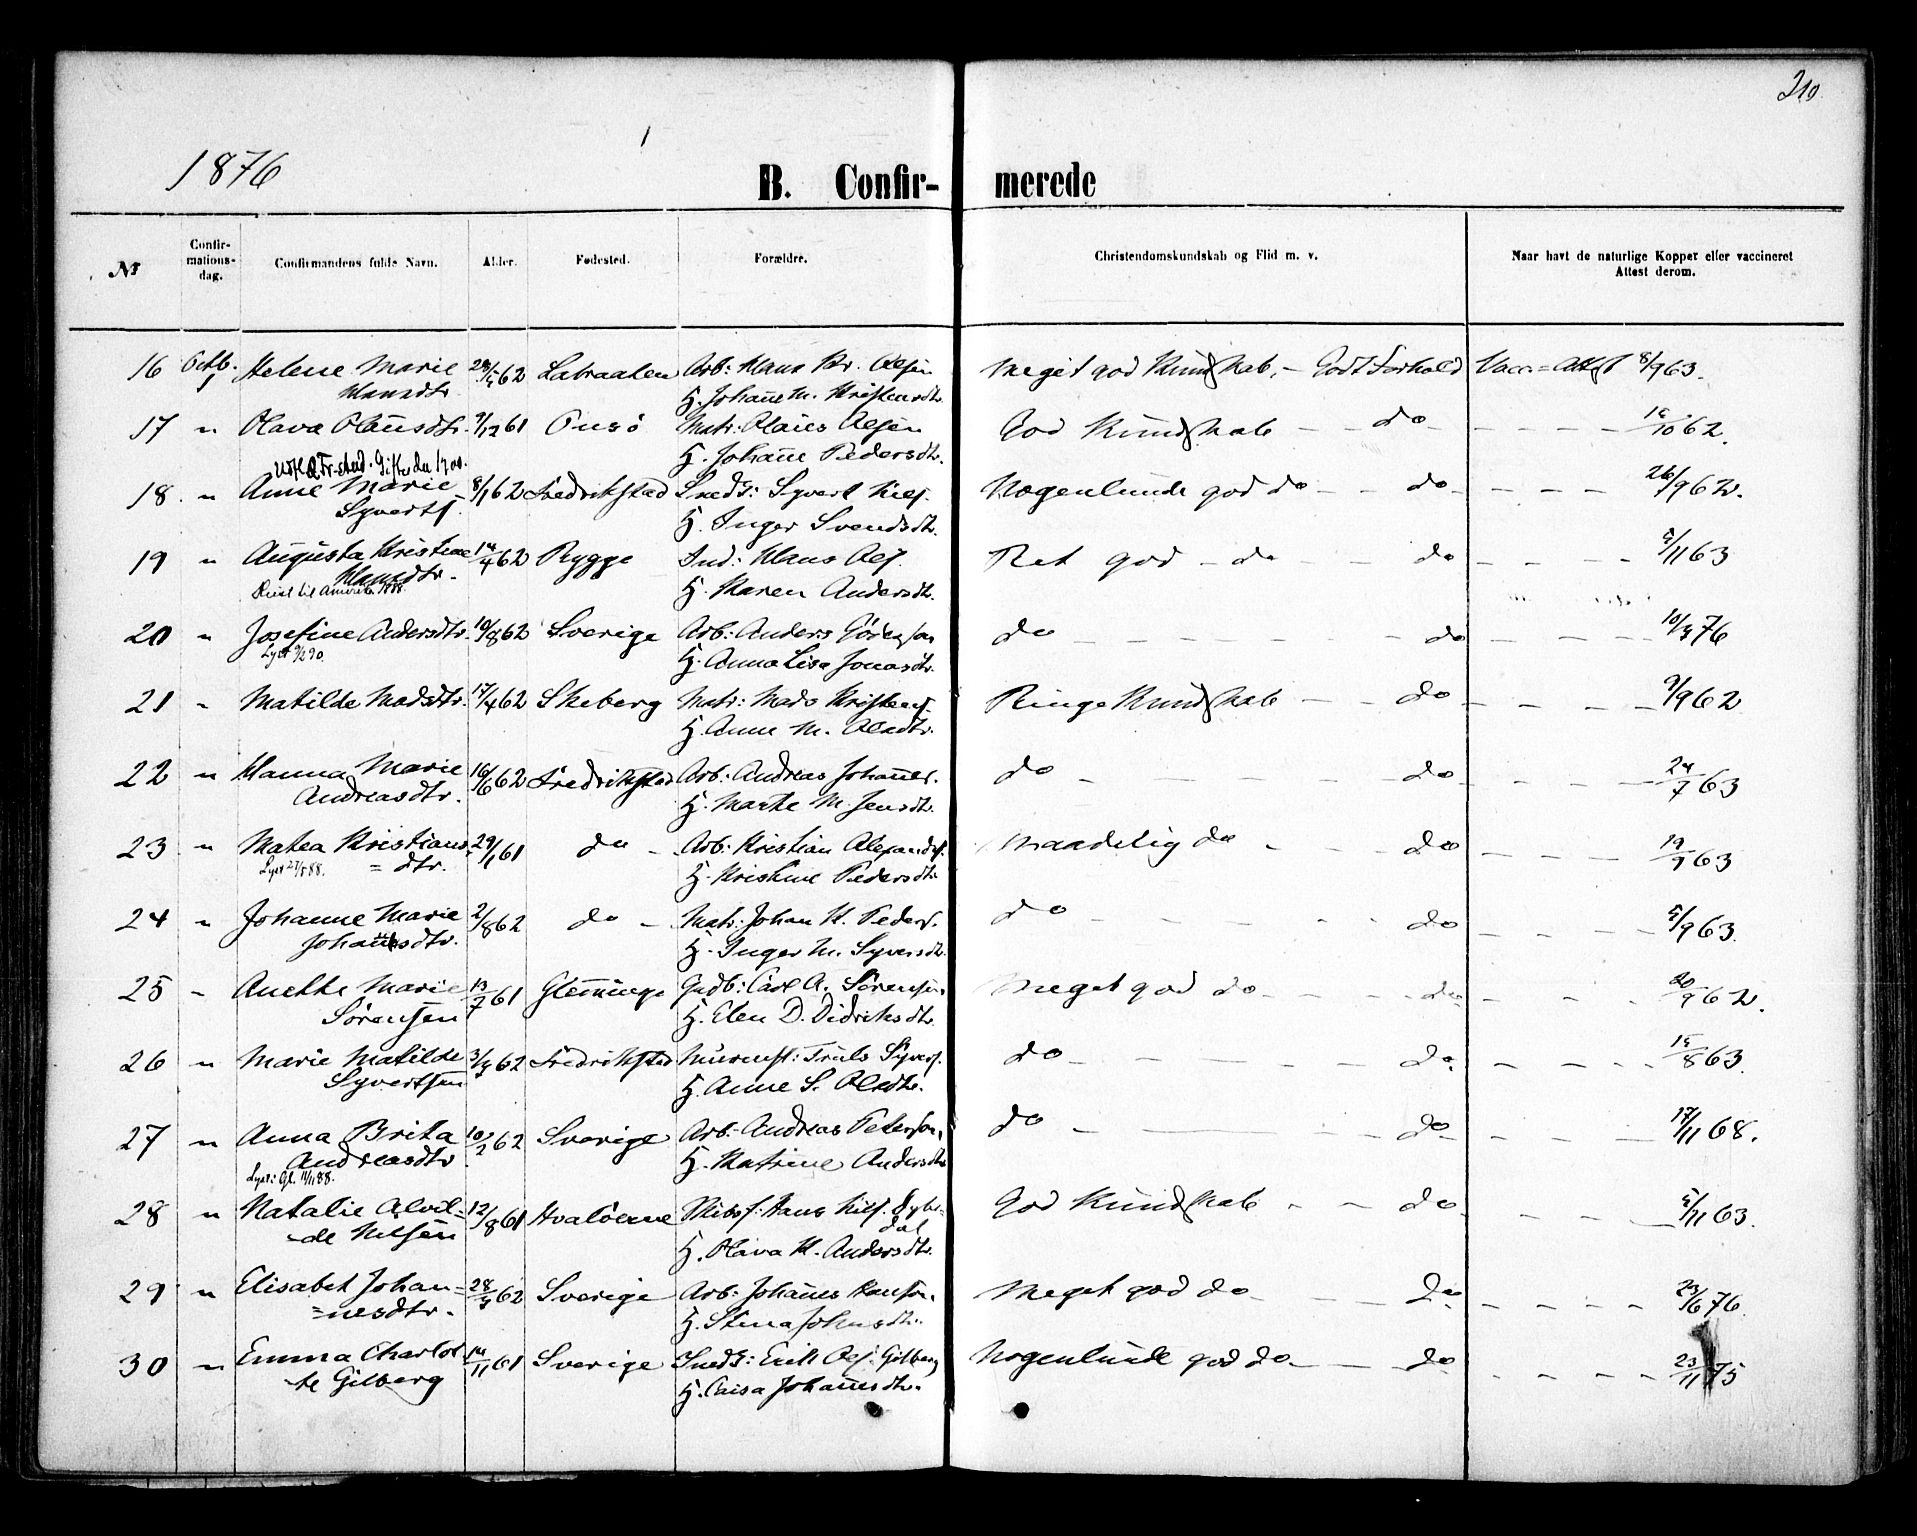 210
1876
B. Confir- merede
№
Confir-
mations-
dag.
Confirmandens fulde Navn.
Alder.
Fødested.
Forældre.
Christendomskundskab og Flid m. v.
Naar havt de naturlige Kopper eller vaccineret
Attest derom.
16 Octb. 1 Helene Marie 62 Arb: Hans Kr. Olsen Meget god Kundskab, - Godt Forhold Vacc=Attest 8/9 63.
Hansdtr. H. Johanne M. Kristensdtr.
17 " Olava Olausdtr. 9/12 61 Onsö Matr: Olaus Olsen God Kundskab - - do - - - - 16/10 62.
H. Johanne Pedersdtr.
18 " Anne Marie 8/1 62 Fredrikstad Snedk: Syvert Nilsf. Nogenlunde god do - - do - - - - 26/9 62.
Syvertsf. H. Inger Svendsdtr.
19 " Augusta Kristine 14/4 62 Rygge Ind: Hans Olsf. Ret god - do - do - - - - 5/11 63
Hansdtr. H. Karen Andersdtr.
Reist til Amerika 1888.
20 " Josefine Andersdtr. 10/8 62 Sverige Arb: Anders do - - - - do - - - - 76
Lyst 9/2 90. H. Anna Lisa Jonasdtr.
21 " Matilde Madsdtr. 17/4 62 Skeberg Matr: Mads Kristensf. Ringe Kundskab - - do - - - - 9/9 62
H. Anne M. Olsdtr.
22 " Hanna Marie 16/6 62 Fredrikstad Arb: Andreas Johannes. do - - do - - - 24/7 63
Andreasdtr. H. Marte M. Jensdtr.
23 " Matea Kristians- 29/1 61 do - Arb: Kristian Alexandsf. Maadelig do - - - do - - - 19/9 63
= dtr. H. Kristine Pedersdtr.
Lyst 27/5 88.
24 " Johanne Marie 2/8 62 do - Matr: Johan H. Pedersf. do - - - - do - - - 5/9 63
Johansdtr. H. Inger M. Syversdtr.
25 " Anette Marie 13/7 61 Glemminge Gudb: Carl A. Sörensen Meget god do - - - - do - - - 20/9 62.
Sörensen H. Elen D. Didriksdtr.
26 " Marie Matilde 62 Fredrikstad Murmst: Truls Syversf. do - - - - do. - - - - 15/8 63.
Syvertsen H. Anne S. Olsdtr.
27 " Anna Brita 62 Sverige Arb. Andreas Peterson, do - - - do - - - 17/11 68.
Andreasdtr. H. Katrine Andersdtr.
Lyst: Gl. 11/11 88.
28 " Natalie Alvil- 12/8 61 Hvalöerne Skibsf: Hans Nilsf. God Kundskab - - do - - - 5/11 63.
=de Nilsen H. Olava K. Andersdtr.
29 " Elisabet Johan= 62 Sverige Arb: Johannes Hanson. Meget god do - - do - - - - 23/6 76.
=nesdtr. H. Stina Johnsdtr.
30 " Emma Charlot 14/11 61 Sverige Snedk: Erik Olsf. Gilberg Nogenlunde god do - - do - - - - 23/11 75
=te Gilberg H. Caisa Johannesdtr.